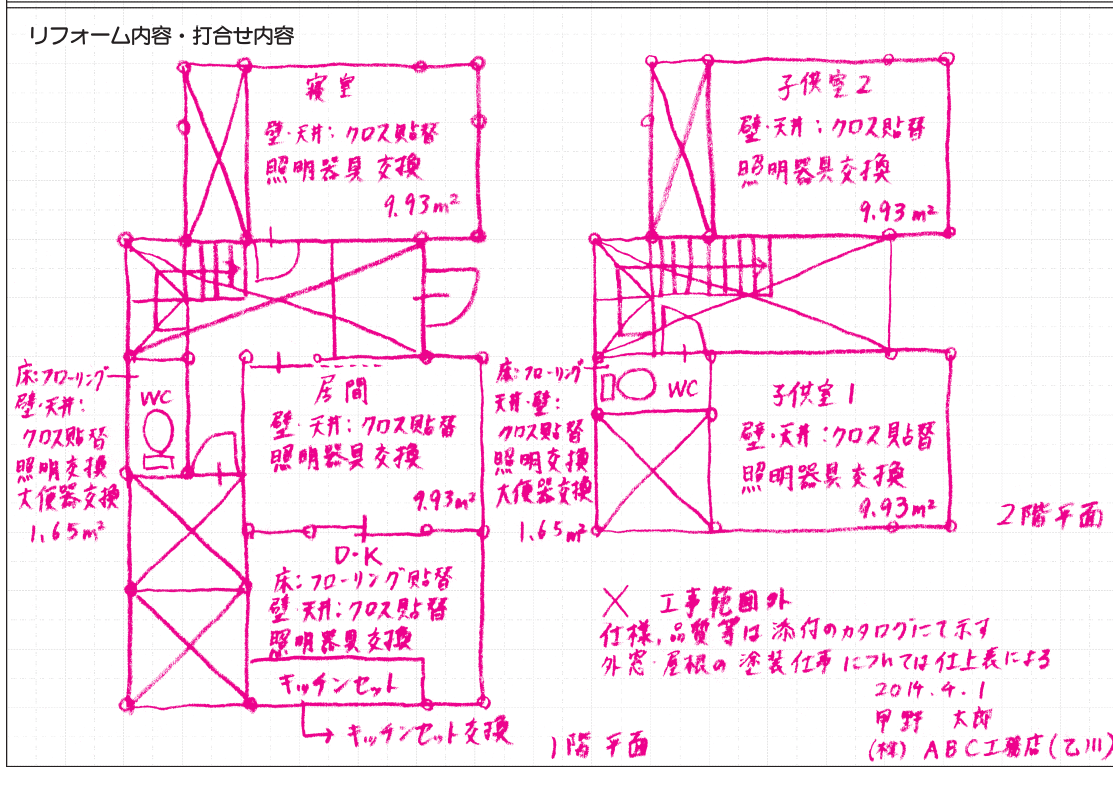 リフォーム内容・打合せ内容
寝室
壁・天井：クロス貼替
照明器具交換
9.93m²
子供室2
壁・天井：クロス貼替
照明器具交換
9.93m²
床：フローリング
壁・天井：
クロス貼替
照明交換
大便器交換
1.65m²
WC
居間
壁・天井：クロス貼替
照明器具交換
9.93m²
D・K
床：フローリング貼替
壁・天井：クロス貼替
照明器具交換
キッチンセット
キッチンセット交換
1階平面
床：フローリング
天井・壁：
クロス貼替
照明交換
大便器交換
1.65m²
WC
子供室1
壁・天井：クロス貼替
照明器具交換
9.93m²
2階平面
× 工事範囲外
仕様，品質等は添付のカタログにて示す
外窓・屋根の塗装仕事については仕上表による
2014.4.1
甲野 太郎
(株) ABC工務店(乙川)